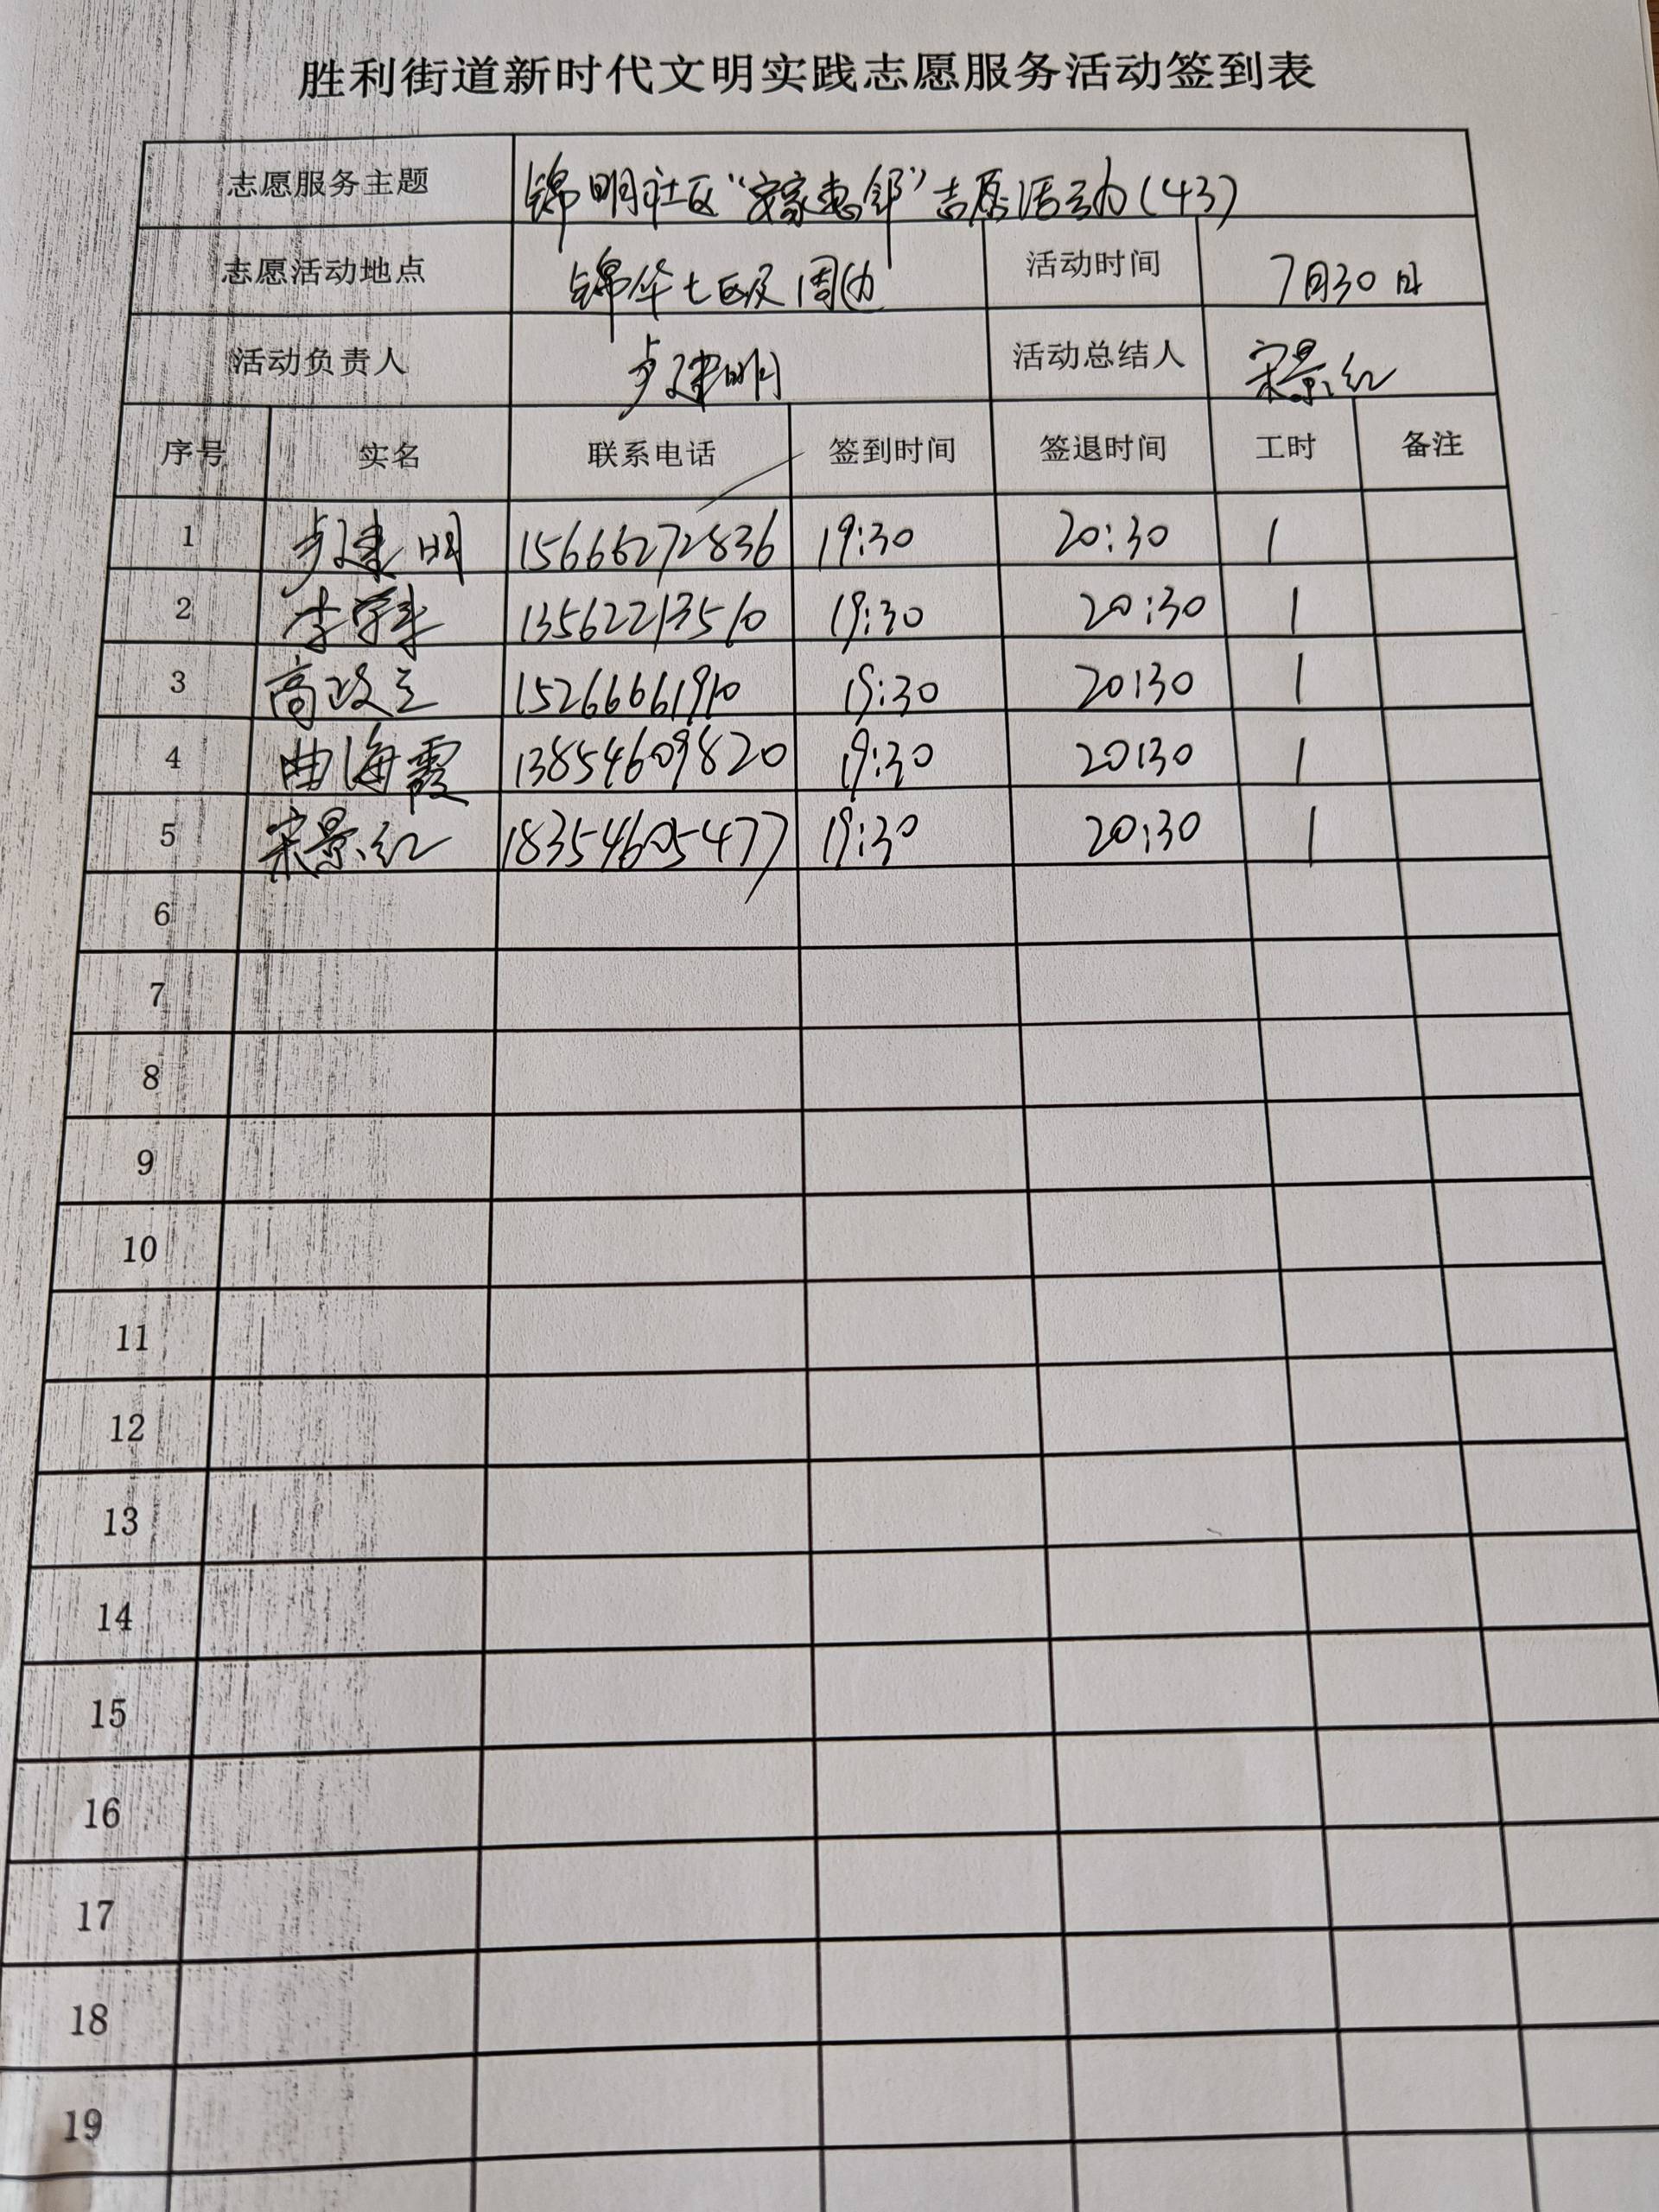 胜利街道新时代文明实践志愿服务活动签到表
志愿服务主题 锦明社区“安家惠邻”志愿活动(43)
志愿活动地点 锦华七区及周边 活动时间 7月30日
活动负责人 卢建明 活动总结人 宋景红
序号 实名 联系电话 签到时间 签退时间 工时 备注
1 卢建明 15666272836 19:30 20:30 1
2 李学 13562213510 19:30 20:30 1
3 高 15266661910 19:30 20:30 1
4 曲海霞 13854609820 19:30 20:30 1
5 宋景红 18354605477 19:30 20:30 1
6
7
8
9
10
11
12
13
14
15
16
17
18
19